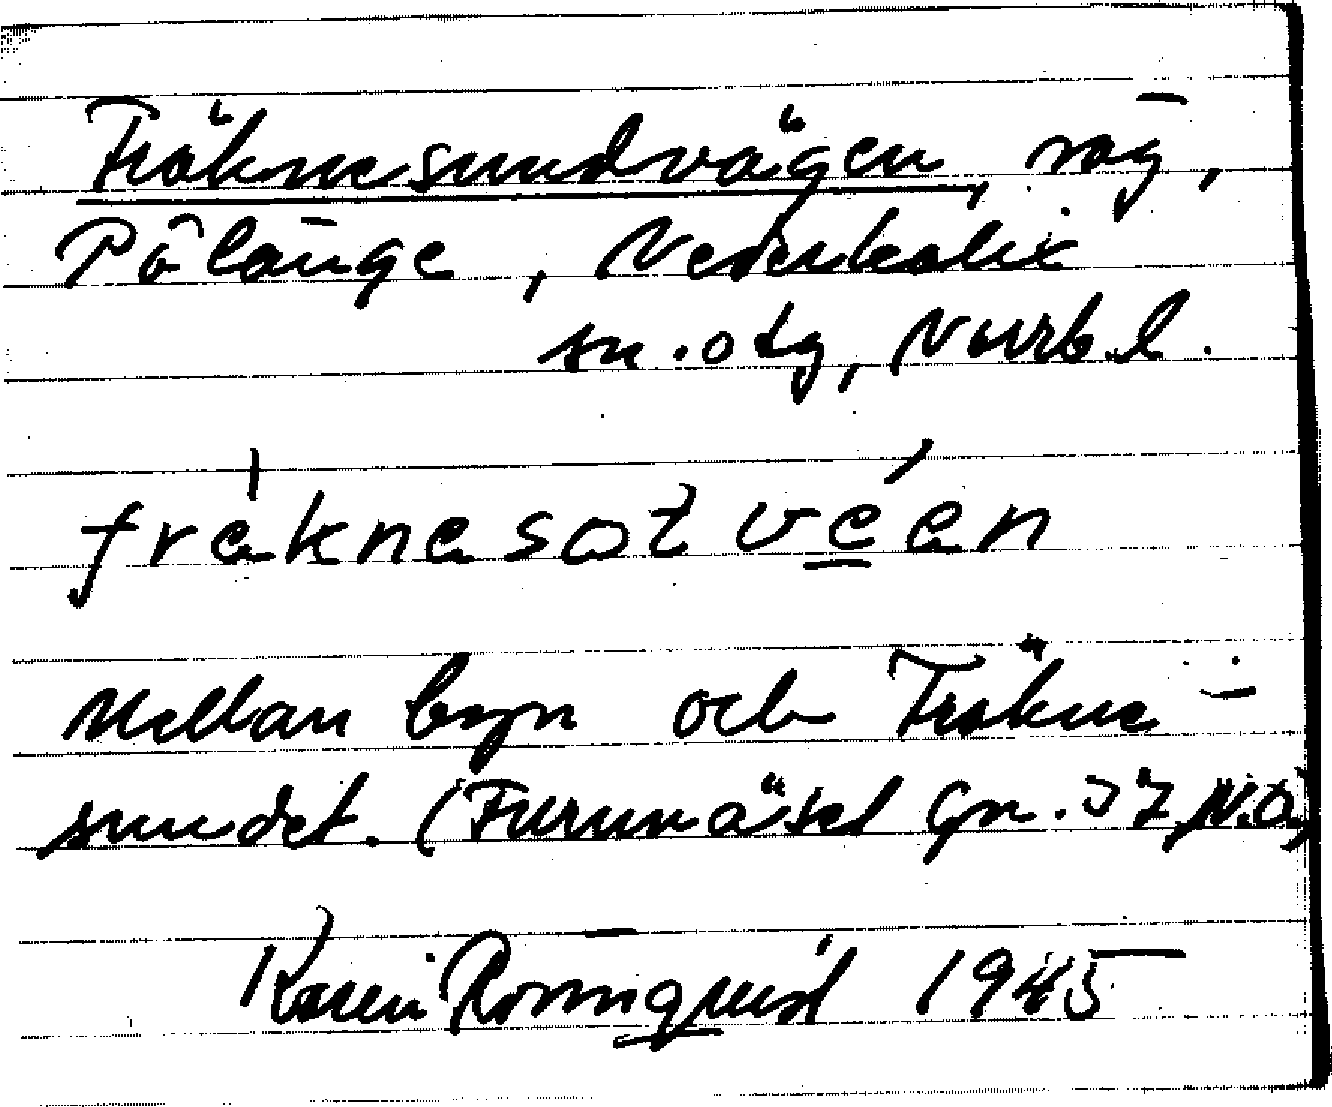 Fräknesundvägen, väg,
Pålänge, Nederkalix
sn. o tg, Norrb. l.
fräknesøtvéen
Mellan byn och Fräkne-
sundet. (Furunäset Gn. 37, N.Ö.)
Karin Rönnquist 1945